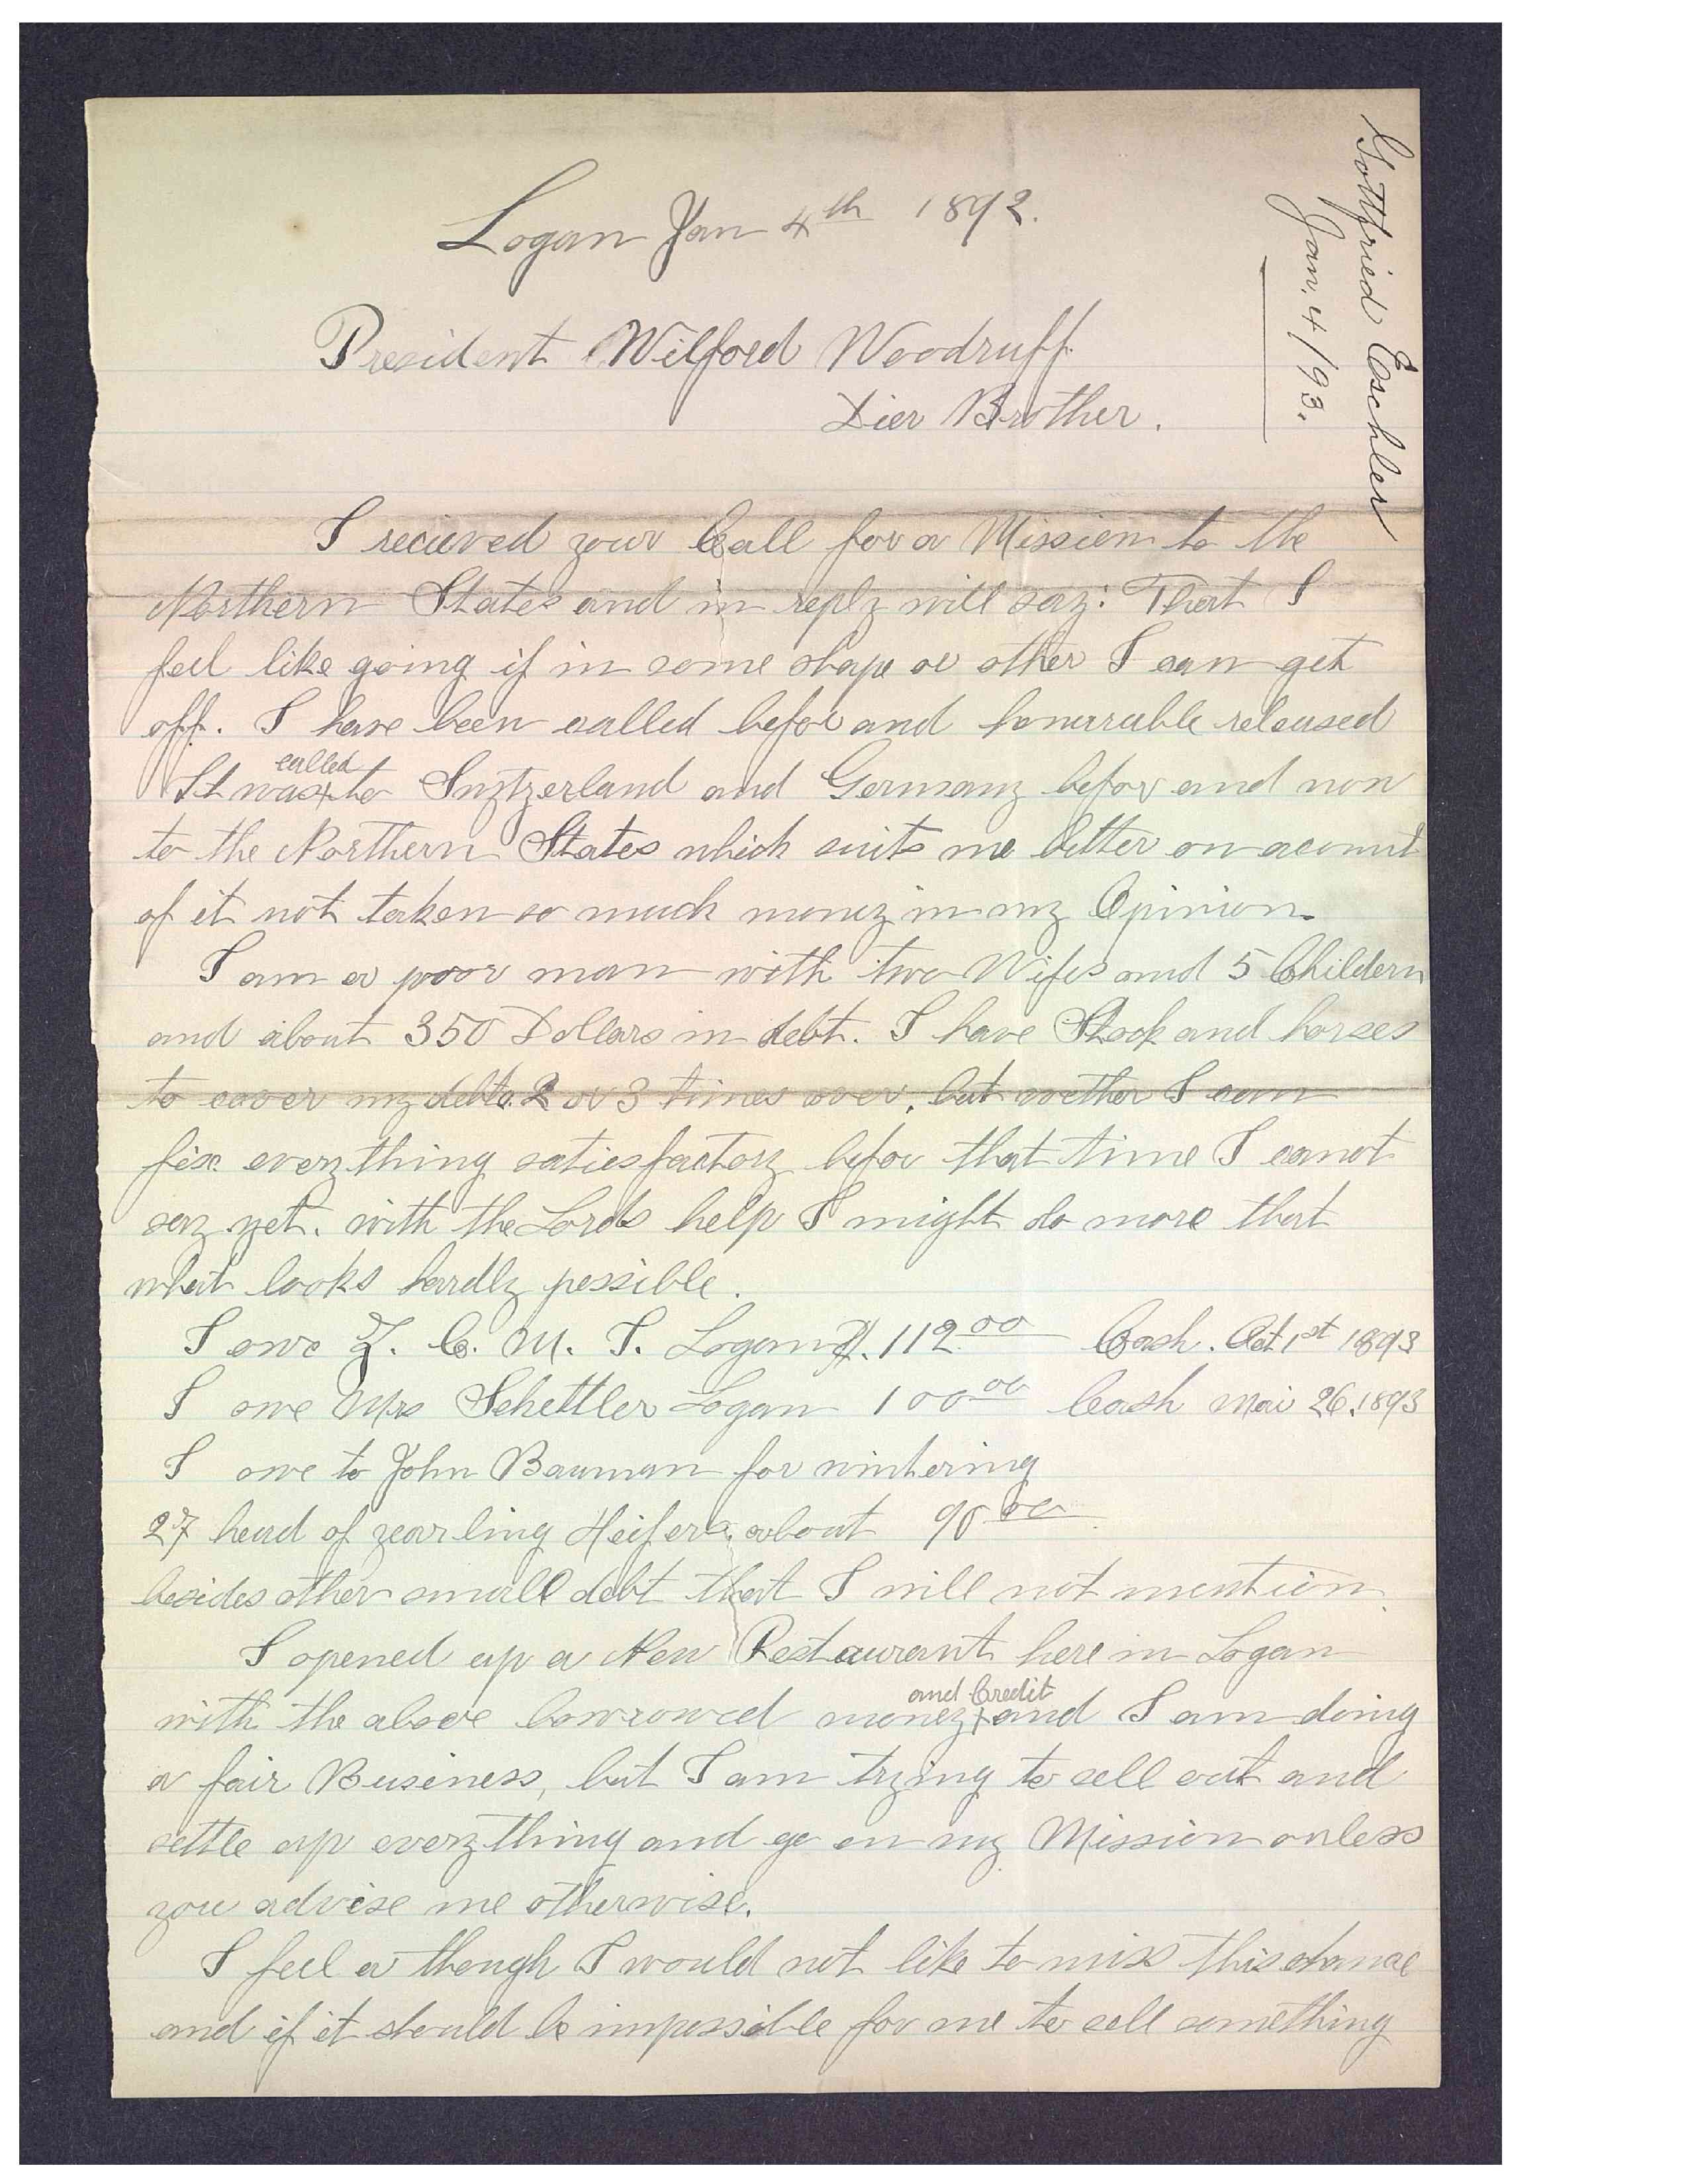 Gottfried Eschler
Jan. 4/93.
Logan Jan 4th 1892.
President Wilford Woodruff
Dier Brother.
I recieved your Call for a Mission to the
Northern States and in reply will say: That I
feel like going if in some shape or other I can get
off. I have been called befor and honurable released
It was called to Switzerland and Germany befor and now
to the Northern States which suits me better on acount
of it not taken so much money in my Opinion.
I am a poor man with two Wifes and 5 Childern
and about 350 Dollars in debt. I have Stock and horses
to cover my debts 2 or 3 times over, but wether I can
fix everything satiesfactory befor that time I canot
say yet. with the Lords help I might do more that
what looks hardly possible.
I owe Z. C. M. I. Logan $. 112.00 Cash. Oct 1st 1893
I owe Mrs Schettler Logan 100 00 Cash Mai 26. 1893
I owe to John Bauman for wintering
27 head of yearling Heifers about 90 00
besides other small debt that I will not mention.
I opened up a New Restaurant here in Logan
with the above borrowed money and Credit and I am doing
a fair Business, but I am trying to sell out and
settle up everything and go on my Mission unless
you advise me otherwise.
I feel a though I would not like to miss this chance
and if it should be impossible for me to sell something